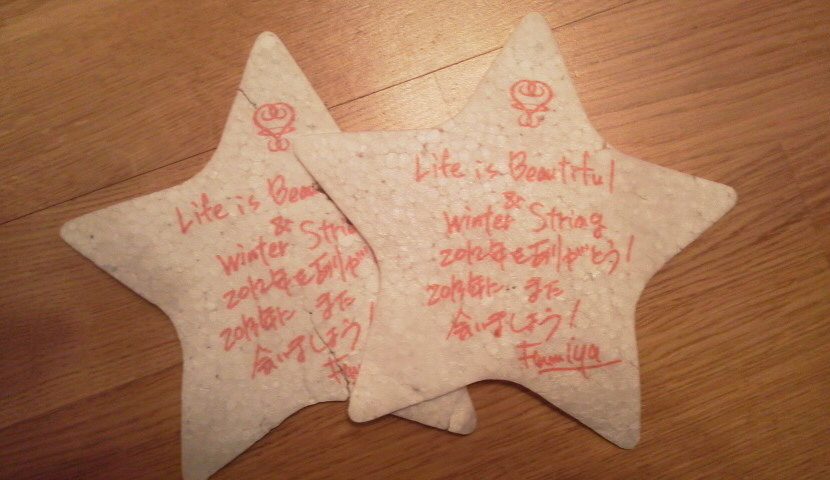 Life is Beau
&
Winter Strin
2012年をありが
2013年に また
会いましょう!
Fu
Life is Beautiful
&
Winter String
2012年をありがとう!
2013年に また
会いましょう!
Fumiya